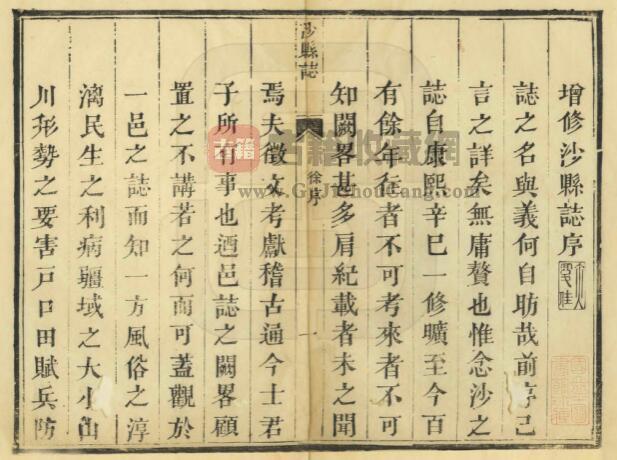 增修沙縣誌序
誌之名與義何自昉哉前序已
言之詳矣無庸贅也惟念沙之
誌自康熙辛巳一修曠至今百
有餘年徃者不可考來者不可
知闕畧甚多肩紀載者未之聞
沙縣誌
徐序
一
焉夫徵文考獻稽古通今士君
子所有事也廼邑誌之闕畧顧
置之不講若之何而可蓋觀於
一邑之誌而知一方風俗之淳
漓民生之利病疆域之大小山
川形勢之要害戸口田賦兵防
古籍
古籍收藏網
www.GuJiShouCang.com